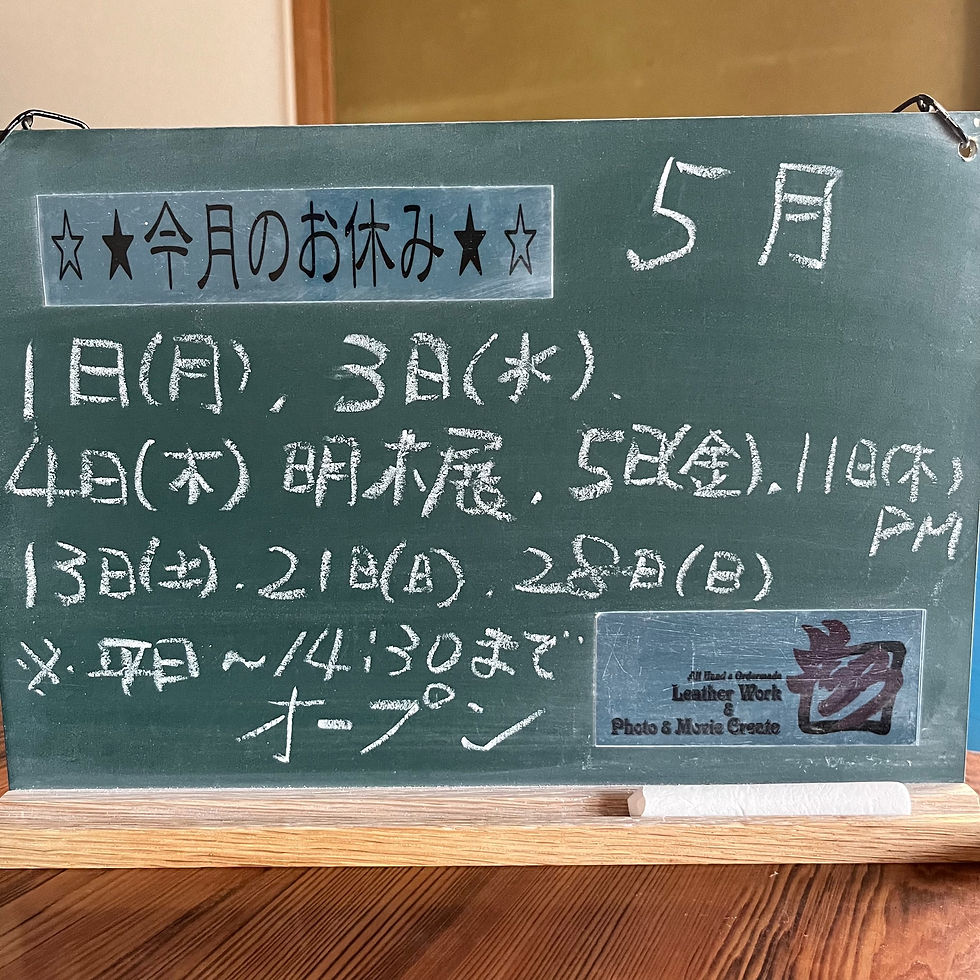 ☆★今月のお休み★☆
5月
1日(月)、3日(水)、
4日(木)明木展、5日(金)、11日(木)
PM
13日(土)、21日(日)、28日(日)
※平日~14:30まで
オープン
All Hand & Ordermade
Leather Work
&
Photo & Movie Create